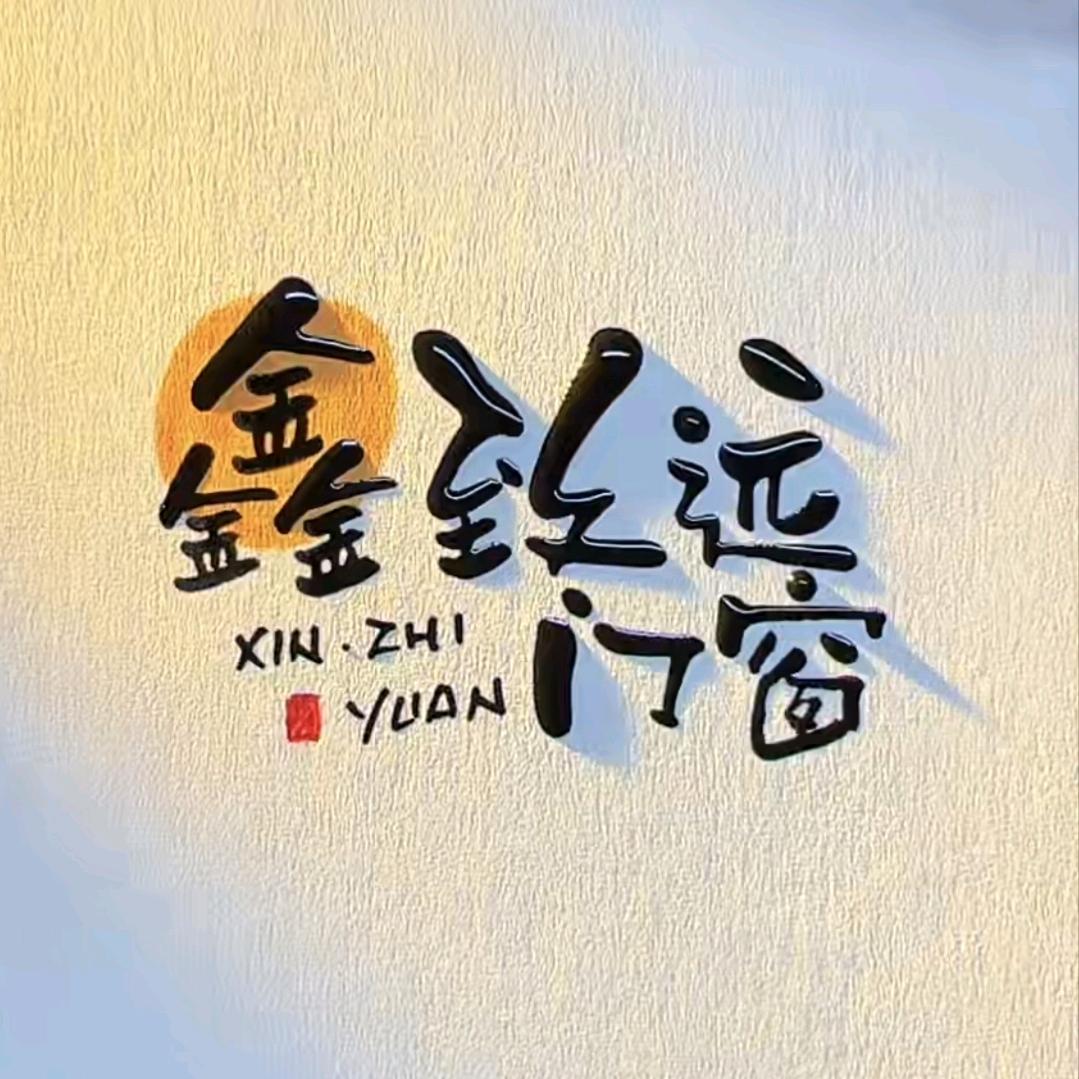 鑫致远
门窗
XIN·ZHI
YUAN